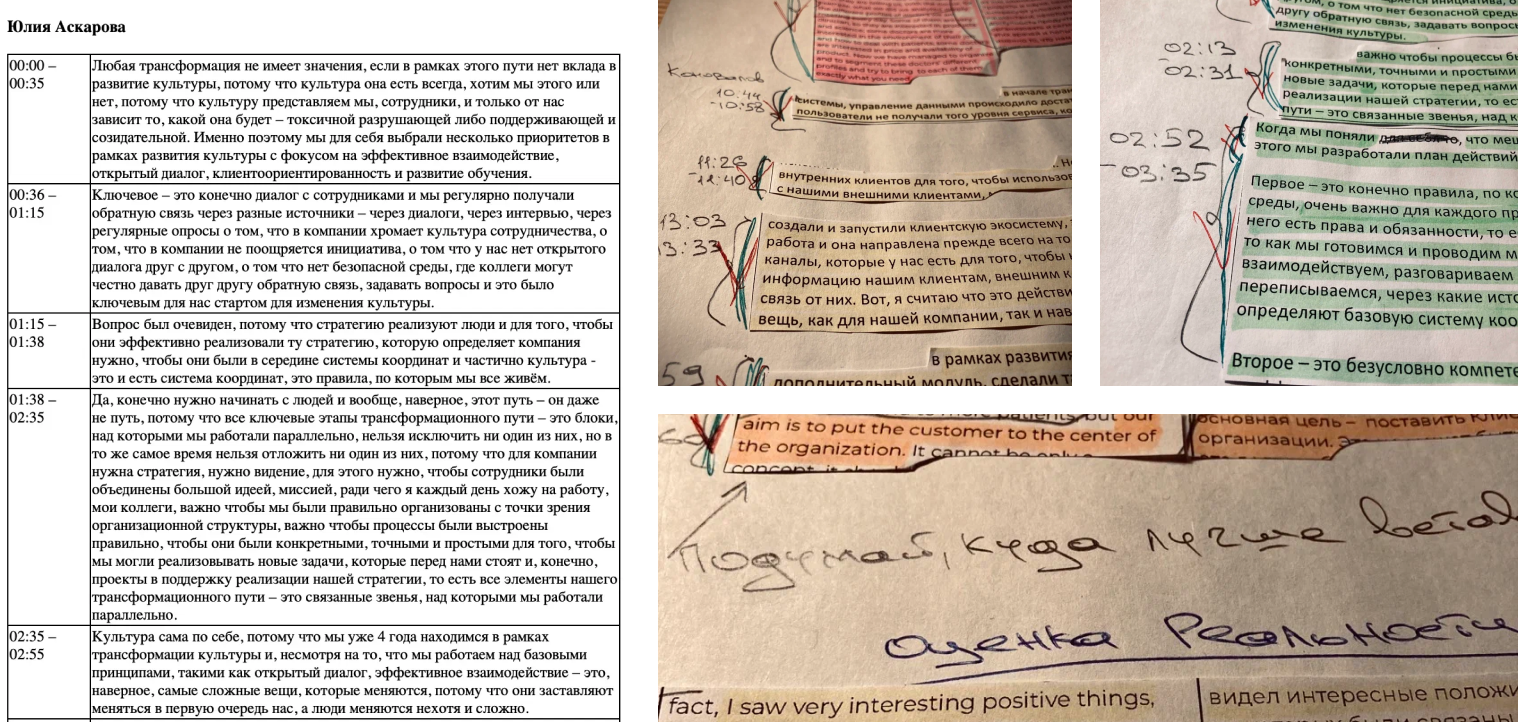 Юлия Аскарова
00:00 –
00:35
Любая трансформация не имеет значения, если в рамках этого пути нет вклада в
развитие культуры, потому что культура она есть всегда, хотим мы этого или
нет, потому что культуру представляем мы, сотрудники, и только от нас
зависит то, какой она будет – токсичной разрушающей либо поддерживающей и
созидательной. Именно поэтому мы для себя выбрали несколько приоритетов в
рамках развития культуры с фокусом на эффективное взаимодействие,
открытый диалог, клиентоориентированность и развитие обучения.
00:36 –
01:15
Ключевое – это конечно диалог с сотрудниками и мы регулярно получали
обратную связь через разные источники – через диалоги, через интервью, через
регулярные опросы о том, что в компании хромает культура сотрудничества, о
том, что в компании не поощряется инициатива, о том что у нас нет открытого
диалога друг с другом, о том что нет безопасной среды, где коллеги могут
честно давать друг другу обратную связь, задавать вопросы и это было
ключевым для нас стартом для изменения культуры.
01:15 –
01:38
Вопрос был очевиден, потому что стратегию реализуют люди и для того, чтобы
они эффективно реализовали ту стратегию, которую определяет компания
нужно, чтобы они были в середине системы координат и частично культура -
это и есть система координат, это правила, по которым мы все живём.
01:38 –
02:35
Да, конечно нужно начинать с людей и вообще, наверное, этот путь – он даже
не путь, потому что все ключевые этапы трансформационного пути – это блоки,
над которыми мы работали параллельно, нельзя исключить ни один из них, но в
то же самое время нельзя отложить ни один из них, потому что для компании
нужна стратегия, нужно видение, для этого нужно, чтобы сотрудники были
объединены большой идеей, миссией, ради чего я каждый день хожу на работу,
мои коллеги, важно чтобы мы были правильно организованы с точки зрения
организационной структуры, важно чтобы процессы были выстроены
правильно, чтобы они были конкретными, точными и простыми для того, чтобы
мы могли реализовывать новые задачи, которые перед нами стоят и, конечно,
проекты в поддержку реализации нашей стратегии, то есть все элементы нашего
трансформационного пути – это связанные звенья, над которыми мы работали
параллельно.
02:35 –
02:55
Культура сама по себе, потому что мы уже 4 года находимся в рамках
трансформации культуры и, несмотря на то, что мы работаем над базовыми
принципами, такими как открытый диалог, эффективное взаимодействие – это,
наверное, самые сложные вещи, которые меняются, потому что они заставляют
меняться в первую очередь нас, а люди меняются нехотя и сложно.
exactly what you need
Коновалов
10:44
-10:58
в начале
системы, управление данными происходило
пользователи не получали того уровня сервиса,
11:26
-11:40
внутренних клиентов для того, чтобы
с нашими внешними клиентами,
13:03
13:33
создали и запустили клиентскую экосистему,
работа и она направлена прежде всего на то
каналы, которые у нас есть для того, чтобы
информацию нашим клиентам, внешним
связь от них. Вот, я считаю что это
вещь, как для нашей компании, так и
59
в рамках
дополнительный модуль, сделали
другу обратную связь, задавать
изменения культуры.
02:13
02:31
важно чтобы процессы
конкретными, точными и простыми
новые задачи, которые перед нами
реализации нашей стратегии, то
пути – это связанные звенья, над
02:52
-03:35
Когда мы поняли что
этого мы разработали план действий
Первое – это конечно правила, по
среды, очень важно для каждого
него есть права и обязанности, то
то как мы готовимся и проводим
взаимодействуем, разговариваем
переписываемся, через какие
определяют базовую систему
Второе – это безусловно
to more patients, but our
aim is to put the customer to the center of
the organization. It cannot be only
основная цель – поставить
организации.
Подумай, куда лучше
Оценка Реальности
fact, I saw very interesting positive things,
видел интересные